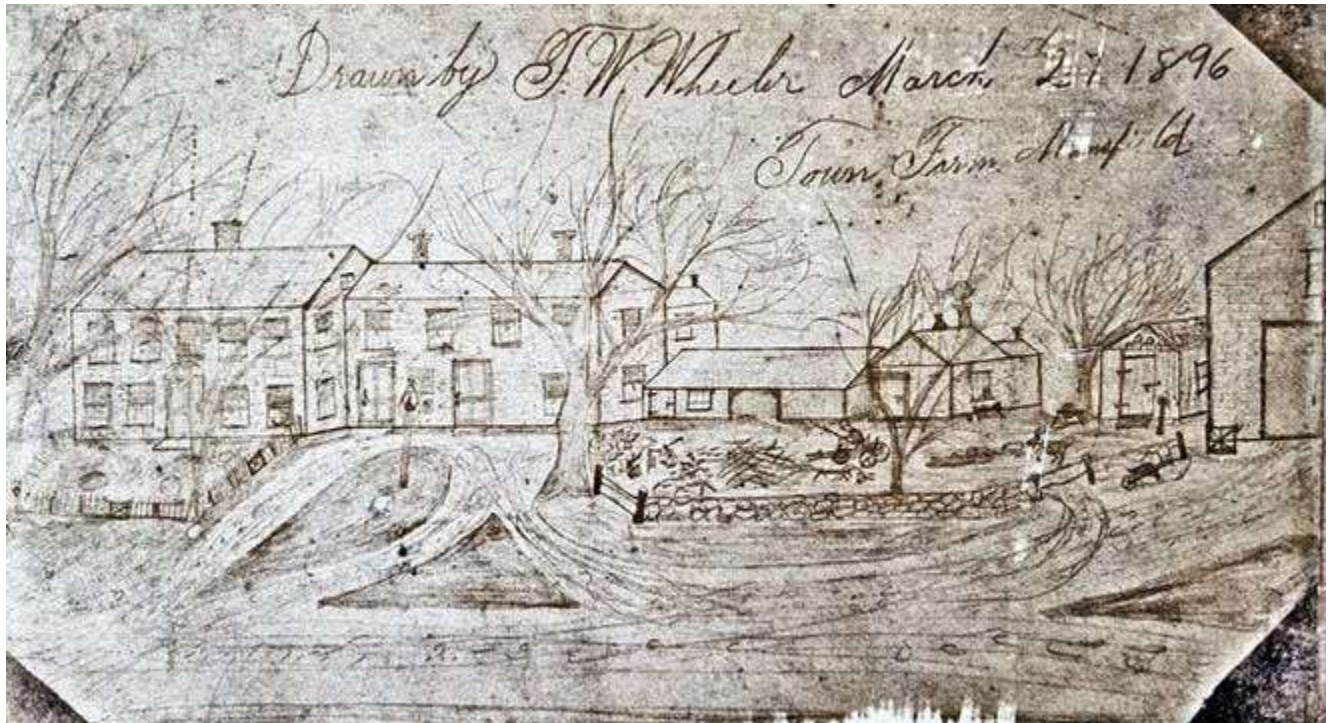 Drawn by T. W. Wheeler March 1896
Town Farm Mansfield